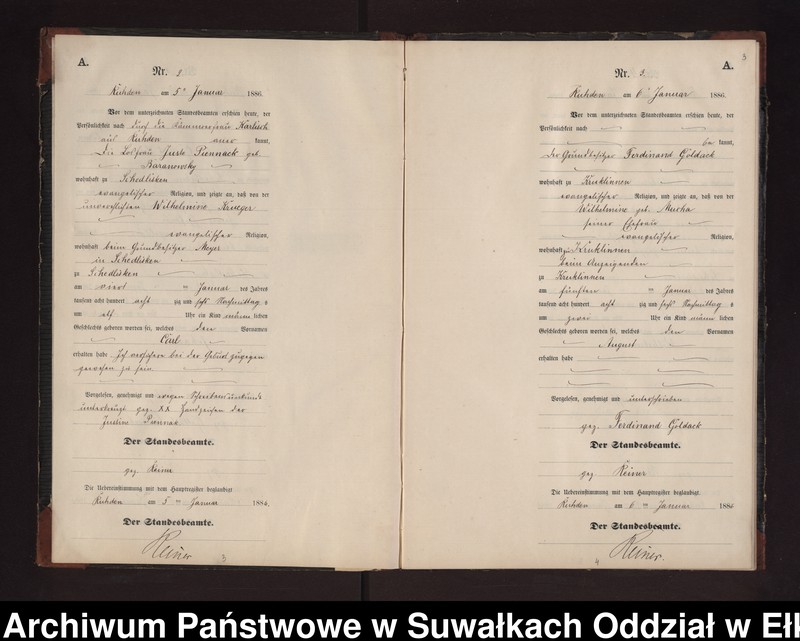 A.
Nr. 2
am 5ⁿ Januar 1886.
Vor dem unterzeichneten Standesbeamten erschien heute, der
Persönlichkeit nach durch die
aus kannt,
die Losfrau Juste Piennack geb.
Baranowsky
wohnhaft zu Schedlisken
evangelischer Religion, und zeigte an, daß von der
unverehlichten Wilhelmine Krueger
evangelischer Religion,
wohnhaft beim Grundbesitzer Meyer
in Schedlisken
zu Schedlisken
am viert en Januar des Jahres
tausend acht hundert acht zig und sechs Nachmittag s
um elf Uhr ein Kind männlichen
Geschlechts geboren worden sei, welches den Vornamen
Carl
erhalten habe. Ich bei der Geburt zugegen
gewesen zu sein.
Vorgelesen, genehmigt und wegen
gez. XXX Handzeichen der
Der Standesbeamte.
gez. Reiner
Die Uebereinstimmung mit dem Hauptregister beglaubigt
am 5 ten Januar 1886.
Der Standesbeamte.
Reiner
3
3
A.
Nr. 3.
am 6 Januar 1886.
Vor dem unterzeichneten Standesbeamten erschien heute, der
Persönlichkeit nach
be kannt,
der Grundbesitzer Ferdinand Goldack
wohnhaft zu Kruklinnen
evangelischer Religion, und zeigte an, daß von der
Wilhelmine geb.
seiner Ehefrau
evangelischer Religion,
wohnhaft zu Kruklinnen
beim Anzeigenden
zu Kruklinnen
am fünften Januar des Jahres
tausend acht hundert acht zig und sechs Nachmittag s
um zwei Uhr ein Kind männlichen
Geschlechts geboren worden sei, welches den Vornamen
August
erhalten habe
Vorgelesen, genehmigt und unterschrieben
gez. Ferdinand Goldack
Der Standesbeamte.
gez Reiner
Die Uebereinstimmung mit dem Hauptregister beglaubigt
am 6 ten Januar 1886
Der Standesbeamte.
Reiner.
4
Archiwum Państwowe w Suwałkach Oddział w Eł